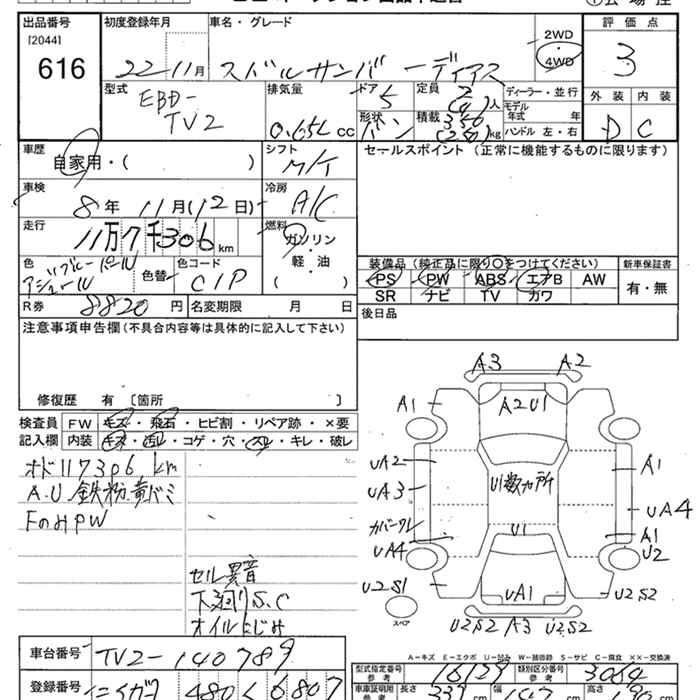 出品番号
[2044]
616
初度登録年月
22-11月
車名・グレード
スバルサンバーディアス
2WD
4WD
評価点
3
外装 内装
D C
型式
EBD-
TV2
排気量
0.65L cc
ドア
5
形状
バン
定員
2
(4)人
積載
350
(250)kg
ディーラー・並行
モデル
年式 年
ハンドル 左・右
車歴
自家用・( )
シフト
M/T
セールスポイント (正常に機能するものに限ります)
車検
8年 11月(12日)
冷房
A/C
走行
11万7千306km
燃料
ガソリン
軽・油
( )
色
アジュールブルーパール
色替
色コード
C1P
装備品 (純正品に限り○をつけてください)
新車保証書
PS PW ABS エアB AW
SR ナビ TV カワ
有・無
R券 8820円
名変期限 月 日
後日品
注意事項申告欄(不具合内容等は具体的に記入して下さい)
修復歴 有 〔箇所 〕
検査員 FW キズ・飛石・ヒビ割・リペア跡・×要
記入欄 内装 キズ・汚レ・コゲ・穴・スレ・キレ・破レ
オド117306km
A.U 鉄粉.黄バミ
FのみPW
セル異音
下廻りS.C
オイルにじみ
A3 A2
A1
A2U1
UA2
UA3
カバークレ
UA4
U1数カ所
A1
UA4
A1
U2
U1
UA1
U2S1
スペア
U2S2 A3 U2S2
U2S2
A-キズ E-エクボ U-凹み W-補修跡 S-サビ C-腐食 ××-交換済
車台番号 TV2-140789
型式指定番号
参考
16129
類別区分番号
参考
3064
登録番号
480 く 6807
車車証明用
参考
長さ
cm 幅 cm 高さ cm